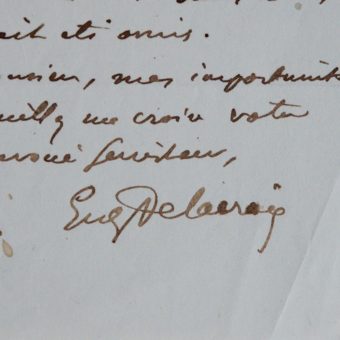 ait été omis.
nsieur, mes importunités
uillez me croire votre
évoué serviteur,
Eug Delacroix